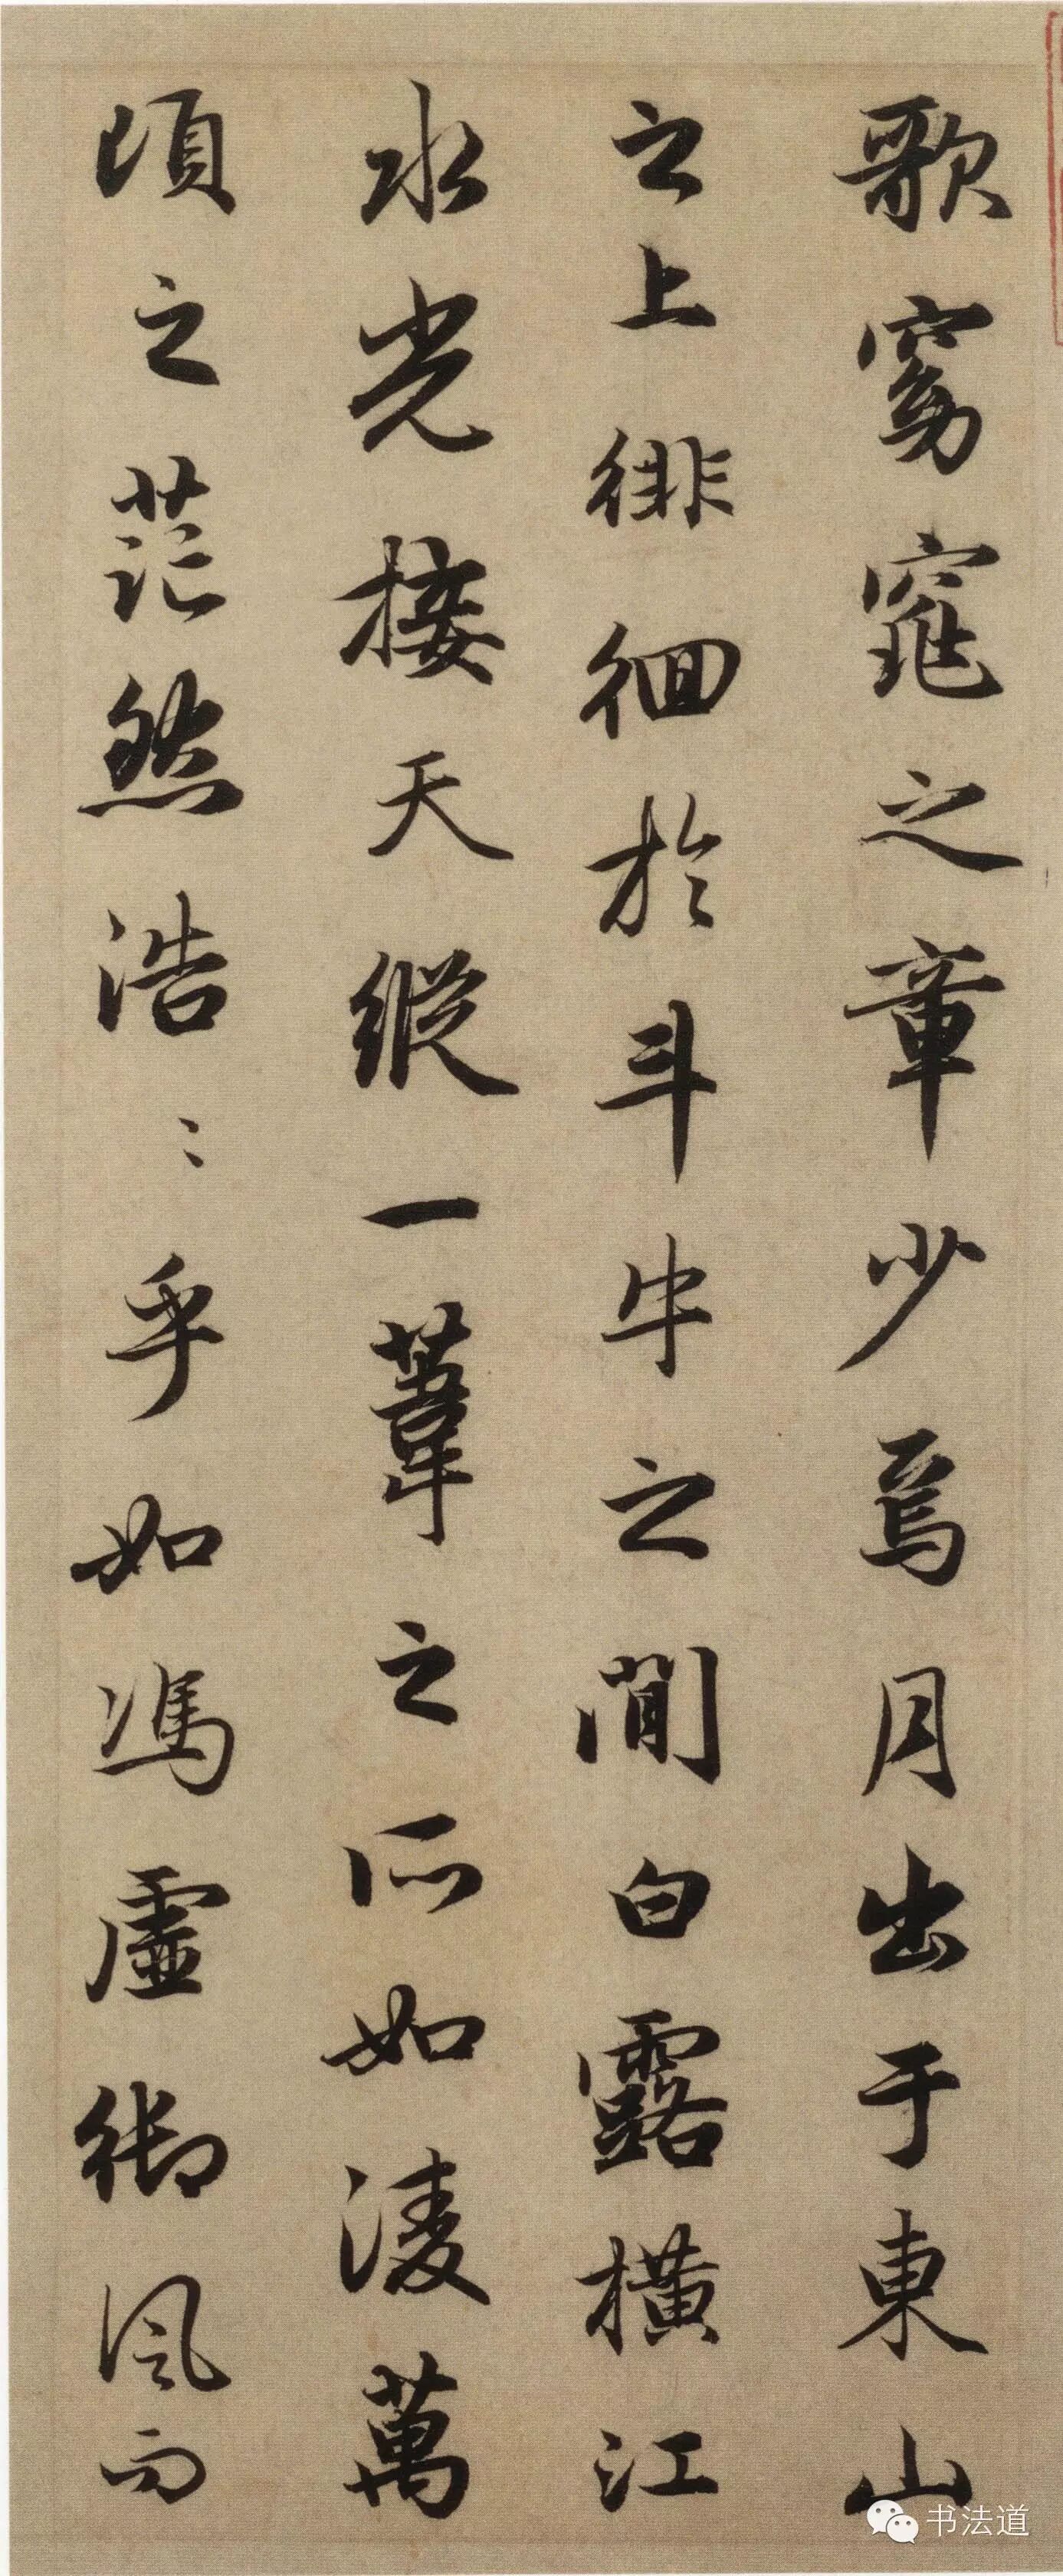 歌窈窕之章少焉月出于東山
之上徘徊於斗牛之間白露橫江
水光接天縱一葦之所如淩萬
頃之茫然浩〻乎如馮虛御風而
书法道